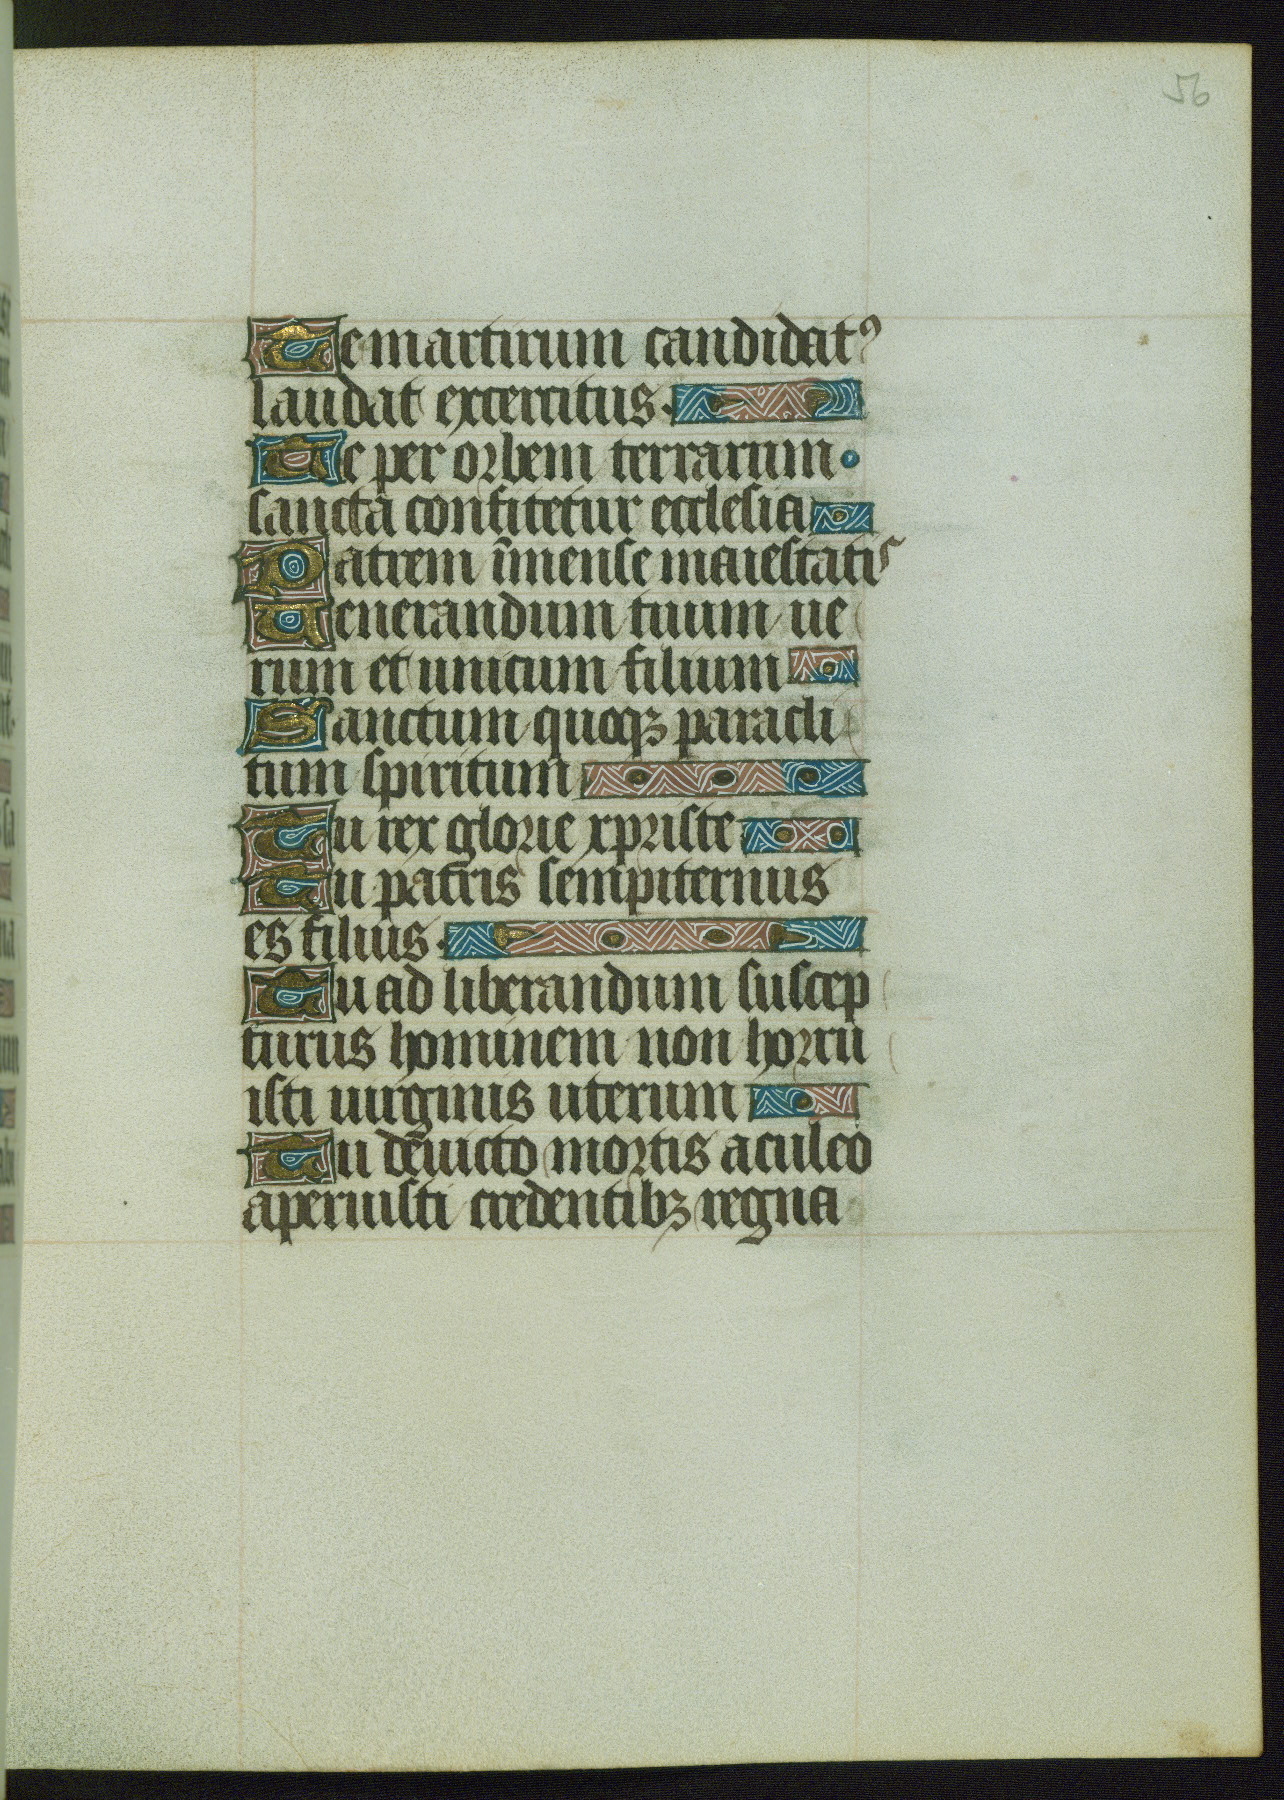 56
Te martirum candidatꝰ
laudat excercitus.
Te per orbem terrarum
sancta confitetur ecclesia
Patrem īmense maiestatis
Uenerandum tuum ue
rum et unicum filium
Sanctum quoqꝫ paracli
tum spiritum
Tu rex glorie xpriste
Tu patris sempiternus
es filius.
Tu ad liberandum suscep
turus hominem non horru
isti uirginis uterum
Tu deuicto mortis aculeo
aperuisti credentibꝫ regna